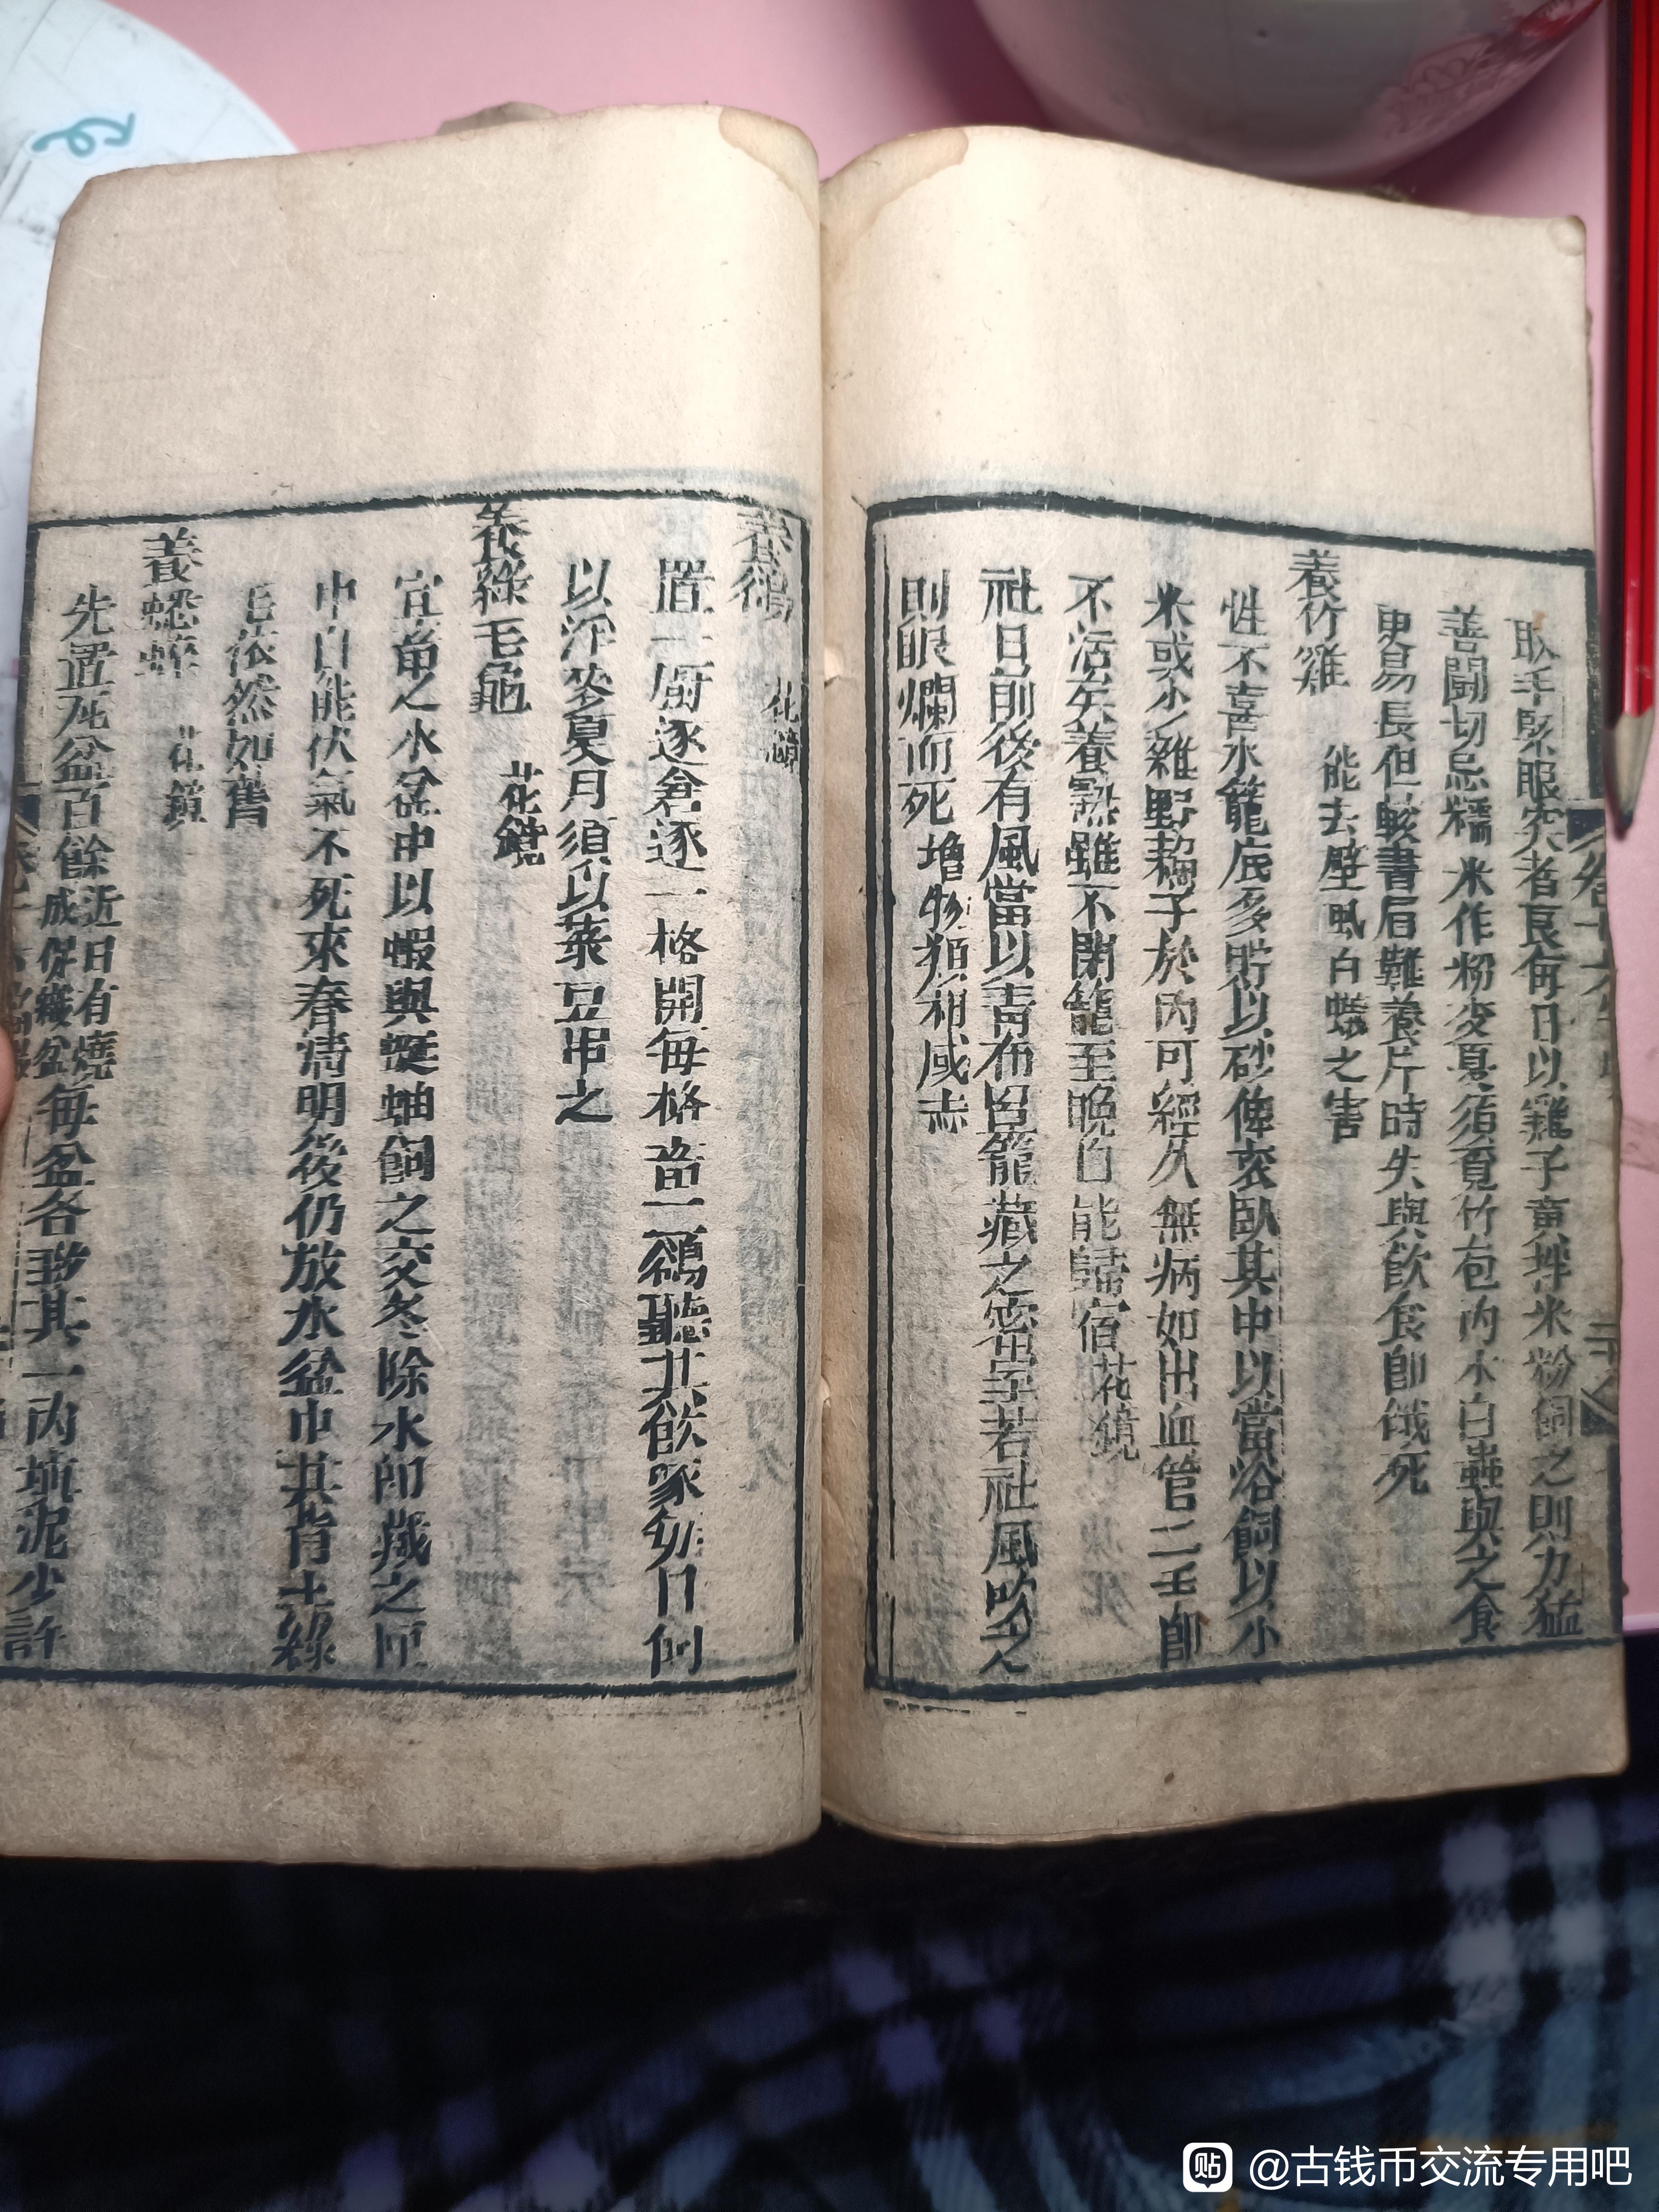 取毛緊眼突者良每日以雞子黃拌米粉飼之則力猛
善鬭切忌糯米作粉交夏須覓竹包內小白蟲與之食
更易長但較書眉難養片時失與飲食卽餓死
養竹雞 能去壁虱白蟻之害
性不喜水籠底多貯以砂俾衮臥其中以當浴飼以小
米或小雞野蒭子於內可經久無病如出血管二壬卽
不活矣養熟雖不閉籠至晚自能歸宿花鏡
社日前後有風當以青布𠕅籠藏之密室若社風吹之
則眼爛而死 增物類相感志
卷十六
養鵒 花鏡
置一廚逐倉逐一格開每格畜二鵒聽其飲啄幼日飼
以浮麥夏月須以菉豆弔之
養綠毛龜 花鏡
宜畜之水盆中以蝦與蜒蚰飼之交冬除水卽藏之匣
中自能伏氣不死來春清明後仍放水盆中其背上綠
毛依然如舊
養蟋蟀 花鏡
先置瓦盆百餘近日有燒成促織盆每盆各致其一內填泥少許
@古钱币交流专用吧